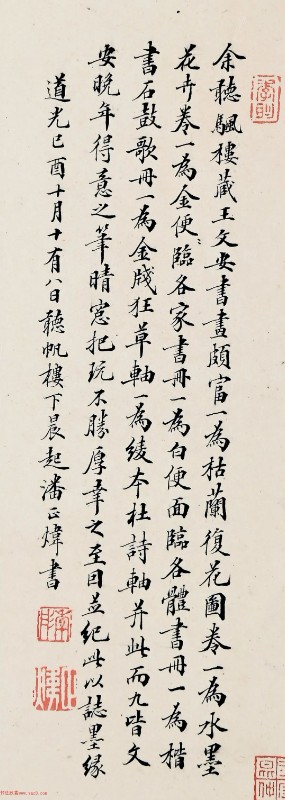 余聽颿樓藏王文安書畫頗富一為枯蘭復花圖卷一為水墨
花卉卷一為金便臨各家書冊一為白便面臨各體書冊一為楷
書石鼓歌冊一為金牋狂草軸一為綾本杜詩軸并此而九皆文
安晚年得意之筆晴窻把玩不勝厚幸之至因并紀此以誌墨緣
道光己酉十月十有八日聽帆樓下晨起潘正煒書